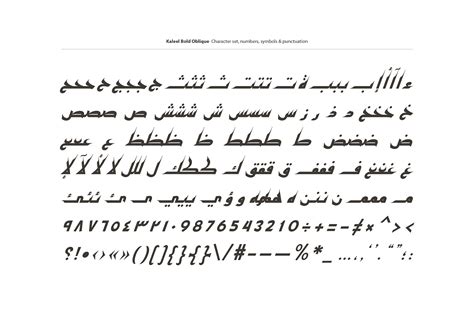 Kaleel Bold Oblique Character set, numbers, symbols & punctuation
ء اآأإ ب ببب ة ت تتت ث ثثث ج ججج ح ححح
خ خخخ د ذ ر ز س سسس ش ششش ص صصص
ض ضضض ط ططط ظ ظظظ ع ععع
غ غغغ ف ففف ق ققق ك ككك ل للل لا لأ لآ لإ
م ممم ن ننن ه ههه و ؤ ي ييي ى ئ ئئئ
٩٨٧٦٥٤٣٢١٠9876543210÷+=-≠×^><
؟!•‹›«»()[]{}\/#-–—%*_…،‘’.“”؛: